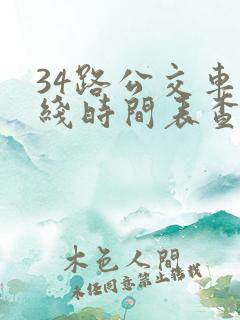 34路公交車
綫時間表查
木色人間
未經同意禁止搬載